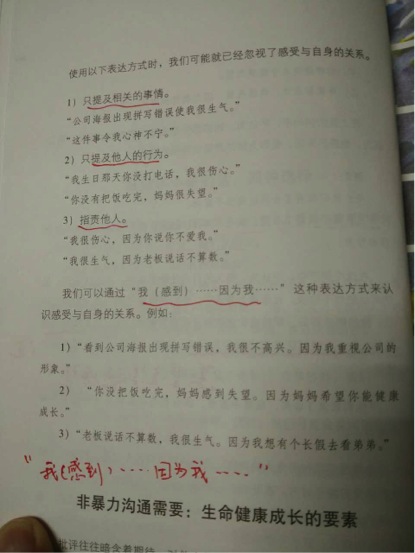 使用以下表达方式时，我们可能就已经忽视了感受与自身的关系。
1）只提及相关的事情。
“公司海报出现拼写错误使我很生气。”
“这件事令我心神不宁。”
2）只提及他人的行为。
“我生日那天你没打电话，我很伤心。”
“你没有把饭吃完，妈妈很失望。”
3）指责他人。
“我很伤心，因为你说你不爱我。”
“我很生气，因为老板说话不算数。”
我们可以通过“我（感到）……因为我……”这种表达方式来认
识感受与自身的关系。例如：
1）“看到公司海报出现拼写错误，我很不高兴。因为我重视公司的
形象。”
2）“你没把饭吃完，妈妈感到失望。因为妈妈希望你能健康
成长。”
3）“老板说话不算数，我很生气。因为我想有个长假去看弟弟。”
“我（感到）……因为我……”
非暴力沟通需要：生命健康成长的要素
批评往往暗含着期待。